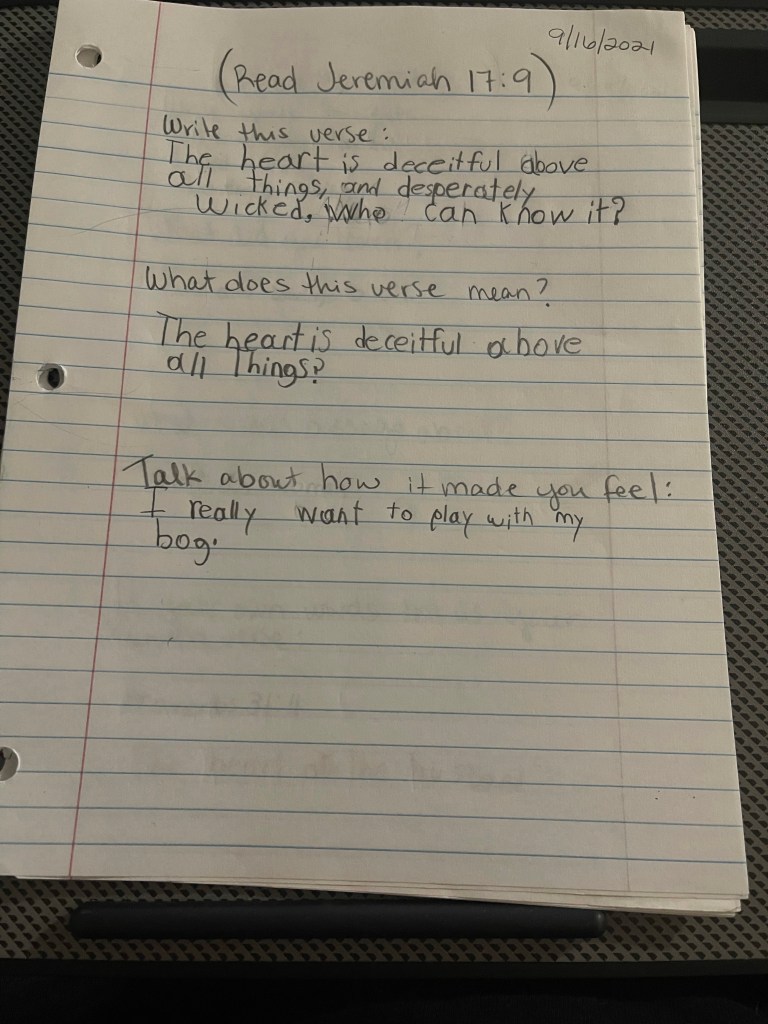 9/16/2021
(Read Jeremiah 17:9)
Write this verse:
The heart is deceitful above
all things, and desperately
wicked, Who can know it?
What does this verse mean?
The heart is deceitful above
all Things?
Talk about how it made you feel:
I really want to play with my
bog.